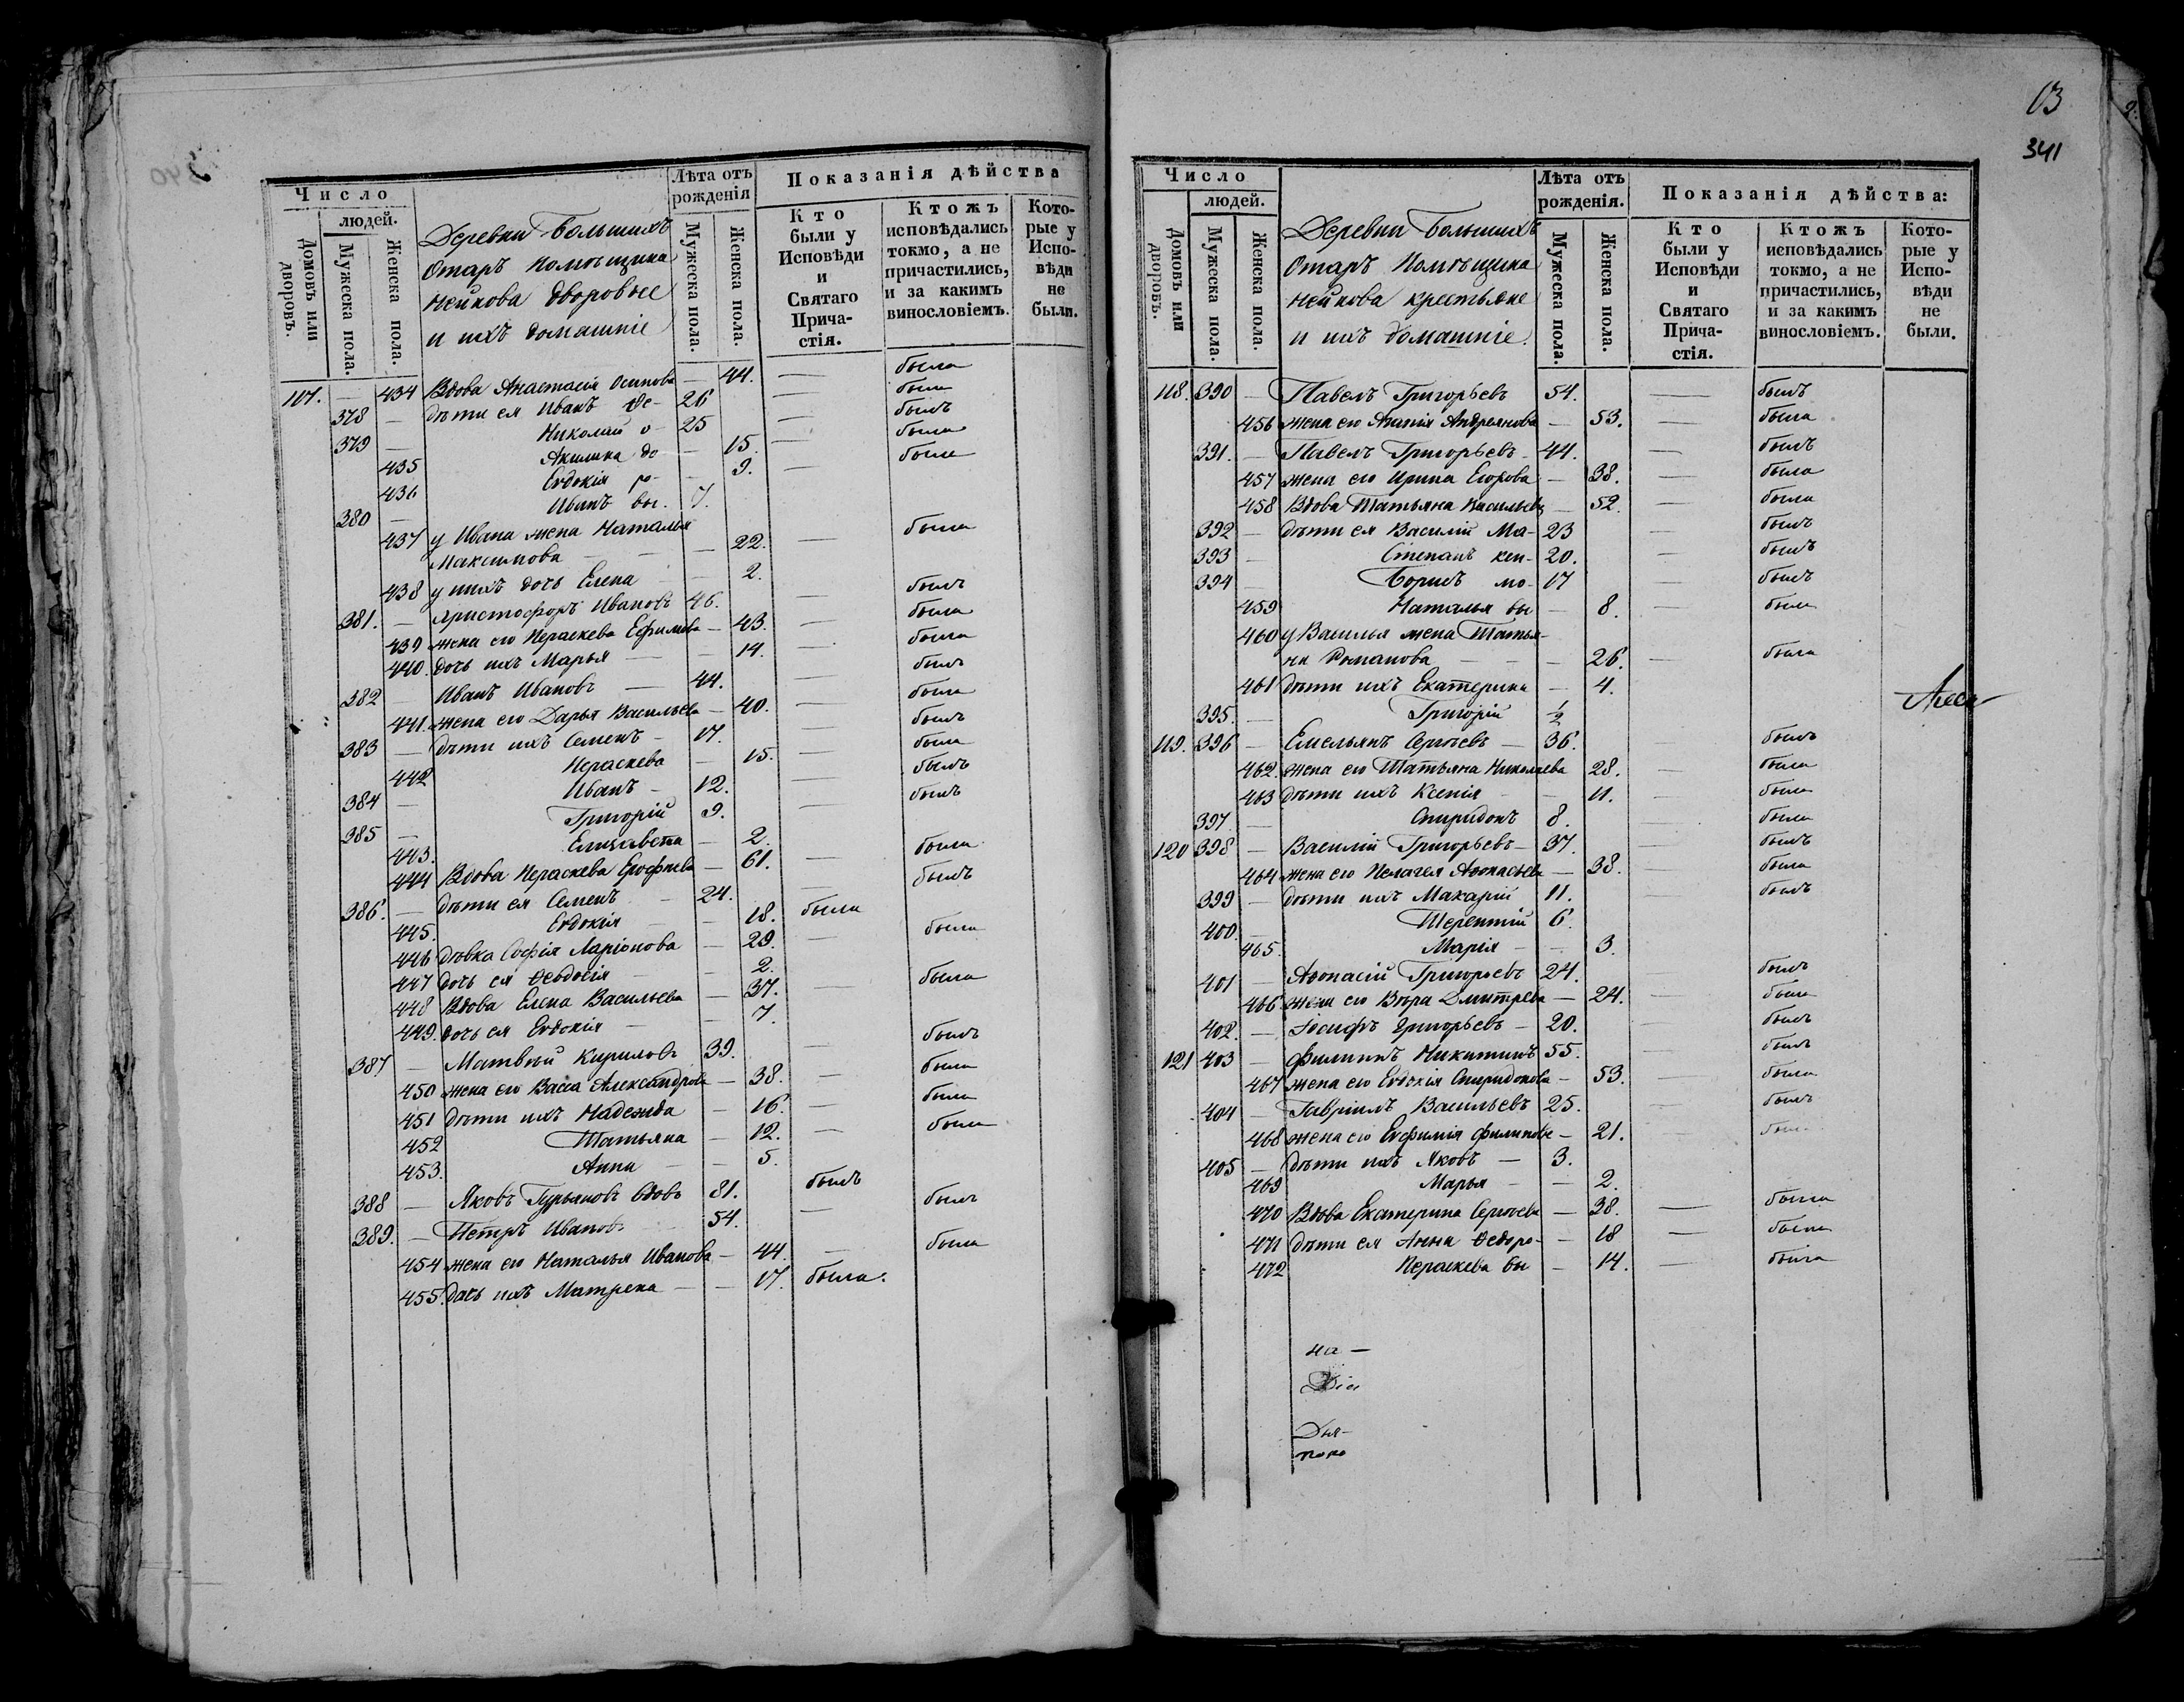 Число
людей.
Домовъ или дворовъ.
Мужеска пола.
Женска пола.
Деревни Большихъ
Отаръ помѣщика
Нейкова дворовые
и ихъ домашніе
Лѣта отъ рожденія
Мужеска пола.
Женска пола.
Показанія дѣйства
Кто были у Исповѣди и Святаго Причастія.
Ктожъ исповѣдались токмо, а не причастились, и за какимъ винословіемъ.
Которые у Исповѣди не были.
117. — 434 Вдова Анастасія Осипова — 44. — была
378 — дѣти ея Иванъ Ѳе- 26 — были
379 — Николай о- 25 — былъ
435 Акилина до — 15. — была
436 Евдокія ро- — 9. — была
380 — Иванъ вы. 7.
437 у Ивана жена Наталья
Максимова — — 22. — была
438 у нихъ дочь Елена — 2.
381. — Христофоръ Ивановъ 46. — былъ
439 жена его Параскева Ефимова — 43. — была
440. дочь ихъ Марья — — 14. — была
382 — Иванъ Ивановъ — 44. — былъ
441. жена его Дарья Васильева — 40. — была
383 — дѣти ихъ Семенъ — 17. — былъ
442 Параскева — 15. — была
384 — Иванъ — 12. — былъ
385 — Григорій 9. — былъ
443. Елизавета — 2.
444 Вдова Параскева Ерофеева — 61. — была
386. — дѣти ея Семенъ — 24. былъ
445. Евдокія — — 18. была
446 дѣвка Софія Ларіонова — 29. — была
447 дочь ея Ѳеодосія — — 2.
448 Вдова Елена Васильева — 37. — была
449. дочь ея Евдокія — — 7.
387 — Матвѣй Кириловъ 39. — былъ
450 жена его Васса Александрова — 38. — была
451 дѣти ихъ Надежда — 16. — была
452 Татьяна — 12. — была
453. Анна — — 5.
388 — Яковъ Гурьяновъ вдовъ 81. былъ
389. — Петръ Ивановъ 54. — былъ
454 жена его Наталья Иванова — 44. — была
455. дочь ихъ Матрена — — 17. была.
341
Число
людей.
Домовъ или дворовъ.
Мужеска пола.
Женска пола.
Деревни Большихъ
Отаръ помѣщика
Нейкова крестьяне
и ихъ домашніе.
Лѣта отъ рожденія.
Мужеска пола.
Женска пола.
Показанія дѣйства:
Кто были у Исповѣди и Святаго Причастія.
Ктожъ исповѣдались токмо, а не причастились, и за какимъ винословіемъ.
Которые у Исповѣди не были.
118. 390 — Павелъ Григорьевъ 54. — былъ
456 жена его Андреянова — 53. — была
391. — Павелъ Григорьевъ — 44. — былъ
457 жена его Ирина Егорова — 38. — была
458 Вдова Татьяна Васильева — 52. — была
392 — дѣти ея Василій Ма- 23 — былъ
393 — Степанъ кси- 20. — былъ
394 — Борисъ мо- 17 — былъ
459 Наталья вы — 8. — была
460 у Василья жена Татья-
на Романова — — 26. — была
461 дѣти ихъ Екатерина — 4.
395. — Григорій ½
119. 396 — Емельянъ Сергѣевъ — 36. былъ
462. жена его Татьяна Николаева 28. — была
463 дѣти ихъ Ксенія — — 11. — была
397 — Спиридонъ 8. — была
120 398 — Василій Григорьевъ — 37. — былъ
464 жена его Пелагея Аѳонасьева — 38. — была
399 — дѣти ихъ Макарій 11. — былъ
400. — Терентій 6.
465. Марія — — 3.
401 — Аѳонасій Григорьевъ 24. былъ
466 жена его Вѣра Дмитрева — 24. — была
402. — Іосифъ Григорьевъ — 20. — былъ
121 403 — Филиппъ Никитинъ 55. — былъ
467 жена его Евдокія Спиридонова — 53. — была
404 — Гавріилъ Васильевъ 25. — былъ
468 жена его Евфимія Филипова — 21. —
405 — дѣти ихъ Яковъ — 3.
469 Марья — — 2.
470 Вдова Екатерина Сергѣева — 38. — была
471 дѣти ея Анна Ѳедоро- — 18 — была
472 Параскева вы — 14. — была
на —
Дья-